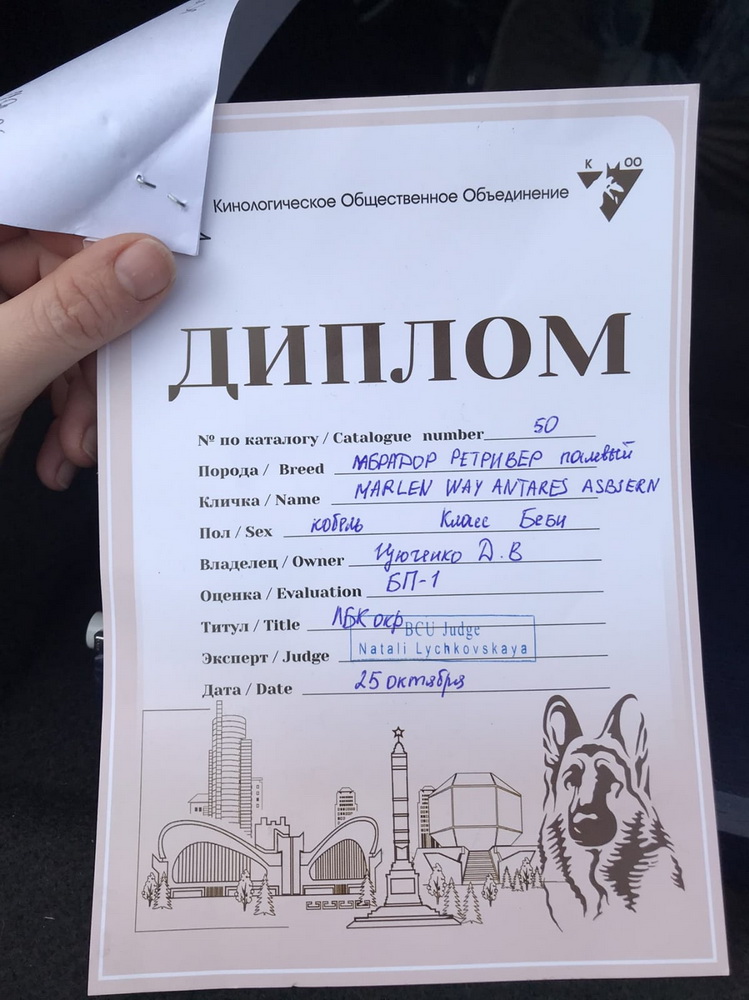 К ОО
Кинологическое Общественное Объединение
ДИПЛОМ
№ по каталогу / Catalogue number 50
Порода / Breed ЛАБРАДОР РЕТРИВЕР палевый
Кличка / Name MARLEN WAY ANTARES ASBJERN
Пол / Sex кобель Класс Беби
Владелец / Owner Д.В
Оценка / Evaluation БП-1
Титул / Title ЛБК окр
BCU Judge
Эксперт / Judge Natali Lychkovskaya
Дата / Date 25 октября